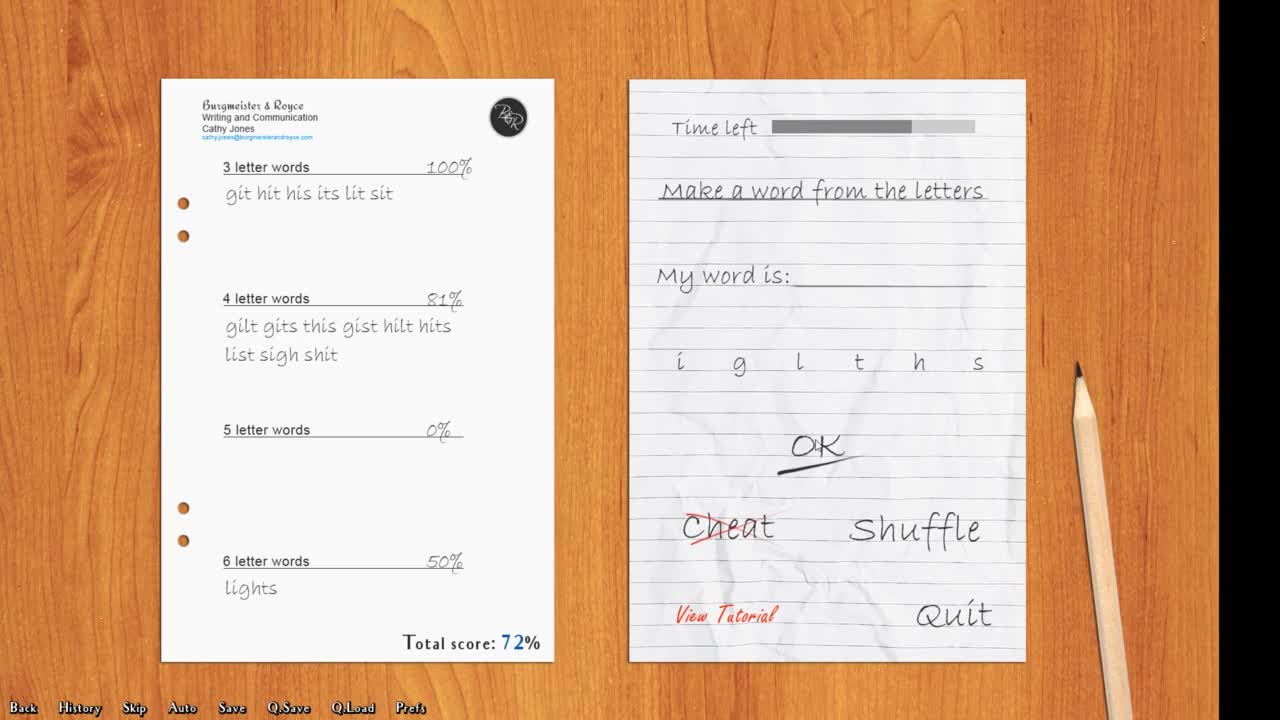 Burgmeister & Royce
Writing and Communication
Cathy Jones
cathy.jones@burgmeisterandroyce.com
B&R
3 letter words 100%
git hit his its lit sit
4 letter words 81%
gilt gits this gist hilt hits
list sigh shit
5 letter words 0%
6 letter words 50%
lights
Total score: 72%
Time left
Make a word from the letters
My word is:
i g l t h s
OK
Cheat Shuffle
View Tutorial Quit
Back History Skip Auto Save Q.Save Q.Load Prefs